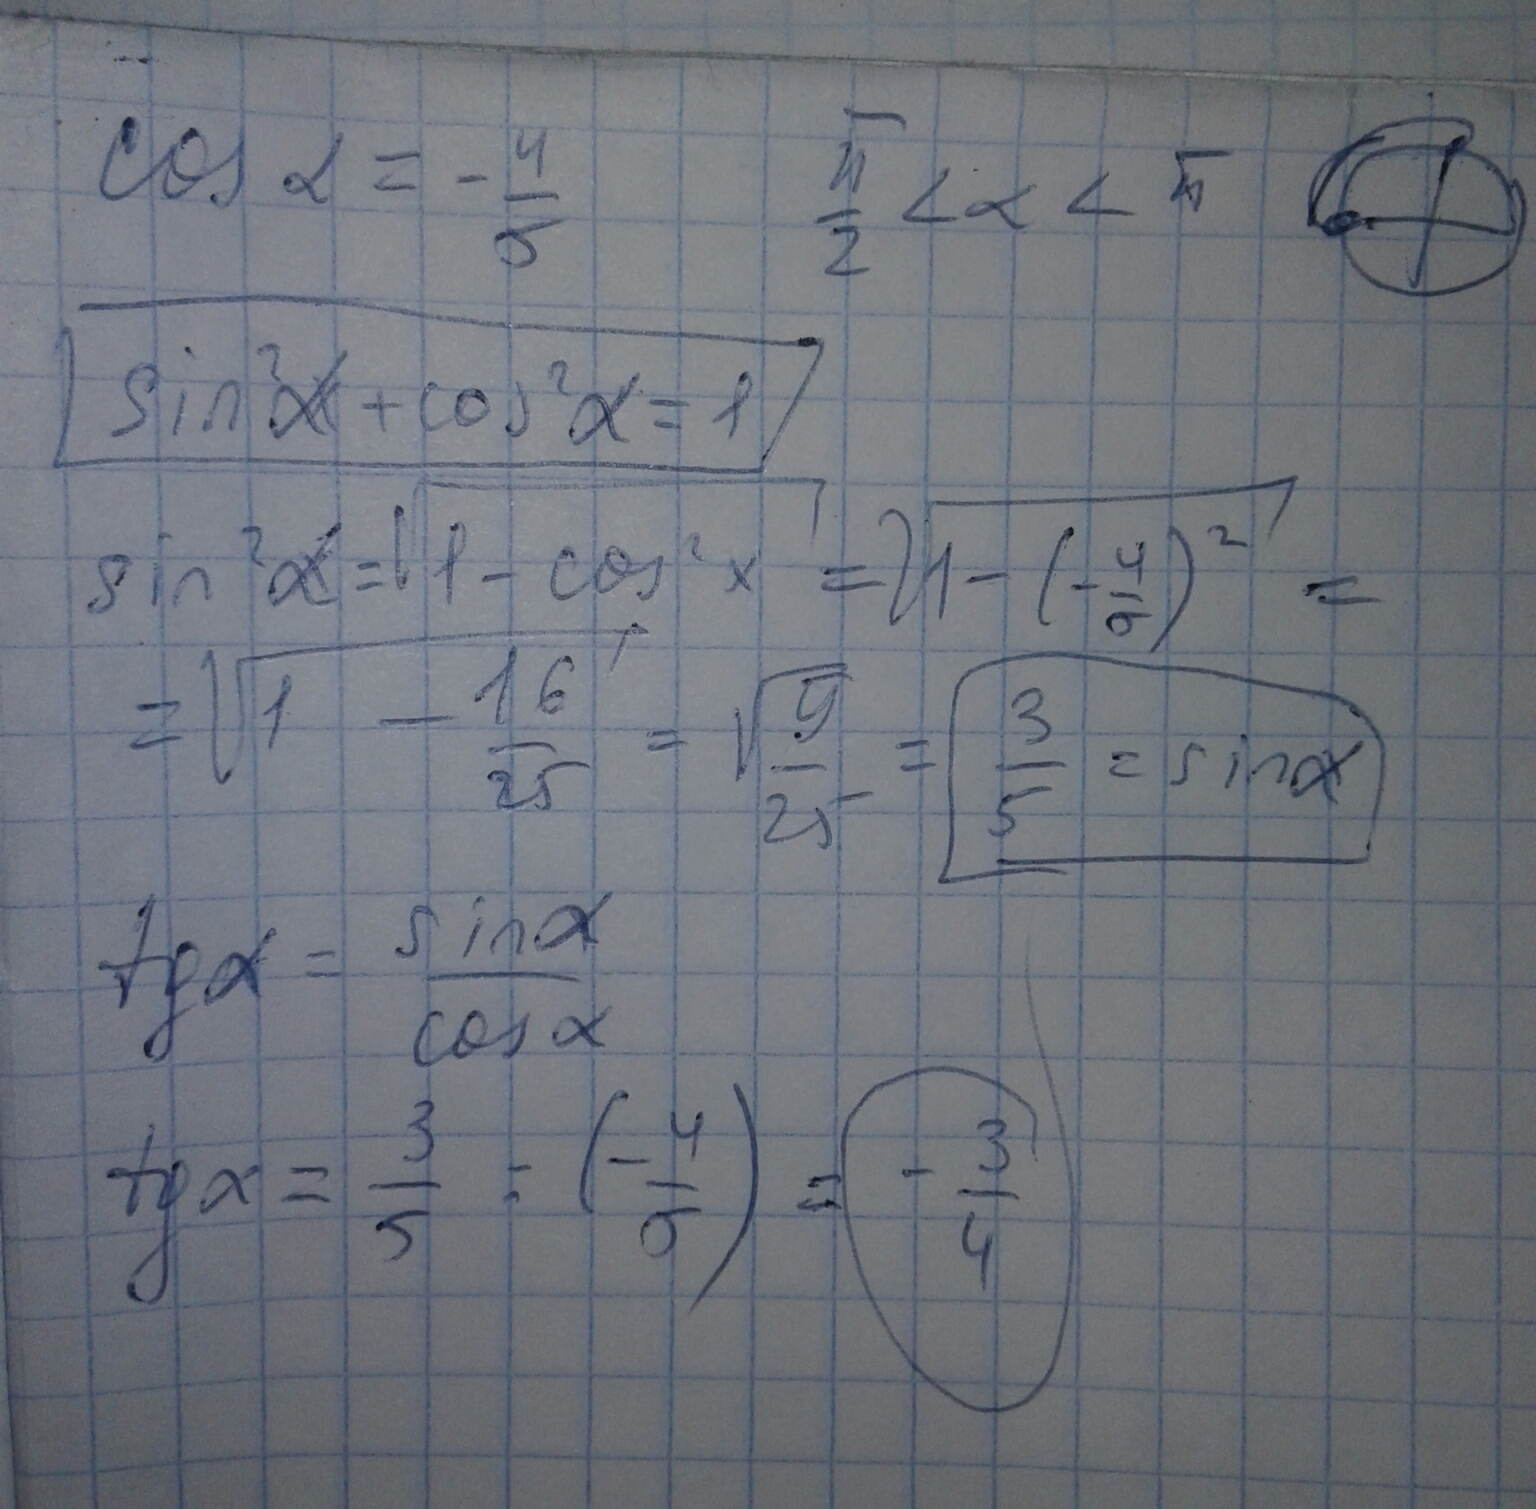 cos α = - 4/5   π/2 < α < π
sin²α + cos²α = 1
sin²α = √(1 - cos²x) = √(1 - (-4/5)²) =
= √(1 - 16/25) = √(9/25) = 3/5 = sinα
tgα = sinα/cosα
tgα = 3/5 : (-4/5) = - 3/4